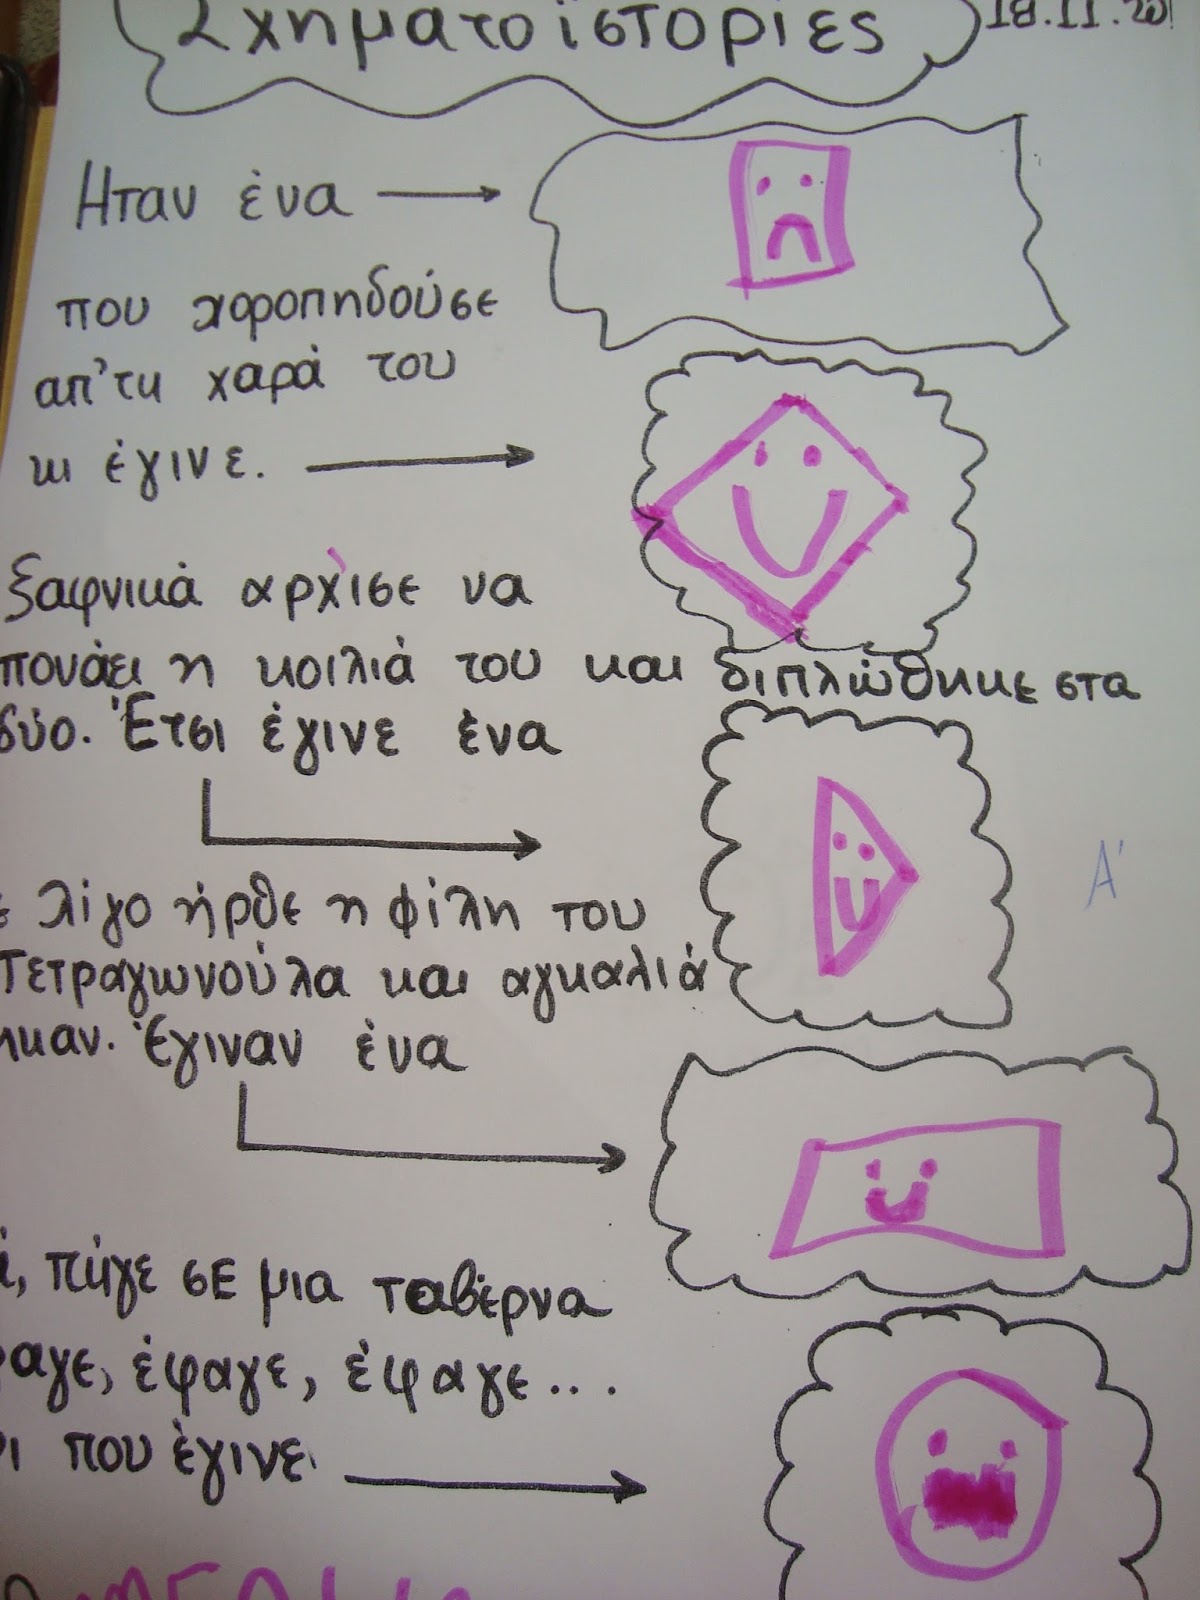 Σχηματοϊστορίες
18.11.20
Ηταν ένα
που χοροπηδούσε
απ'τη χαρά του
κι έγινε.
ξαφνικά αρχισε να
πονάει η κοιλιά του και διπλώθηκε στα
δύο. Έτσι έγινε ένα
Α'
λίγο ήρθε η φίλη του
Τετραγωνούλα και αγκαλιά
ηκαν. Έγιναν ένα
πήγε σΕ μια ταβέρνα
φαγε, έφαγε, έφαγε...
που έγινε